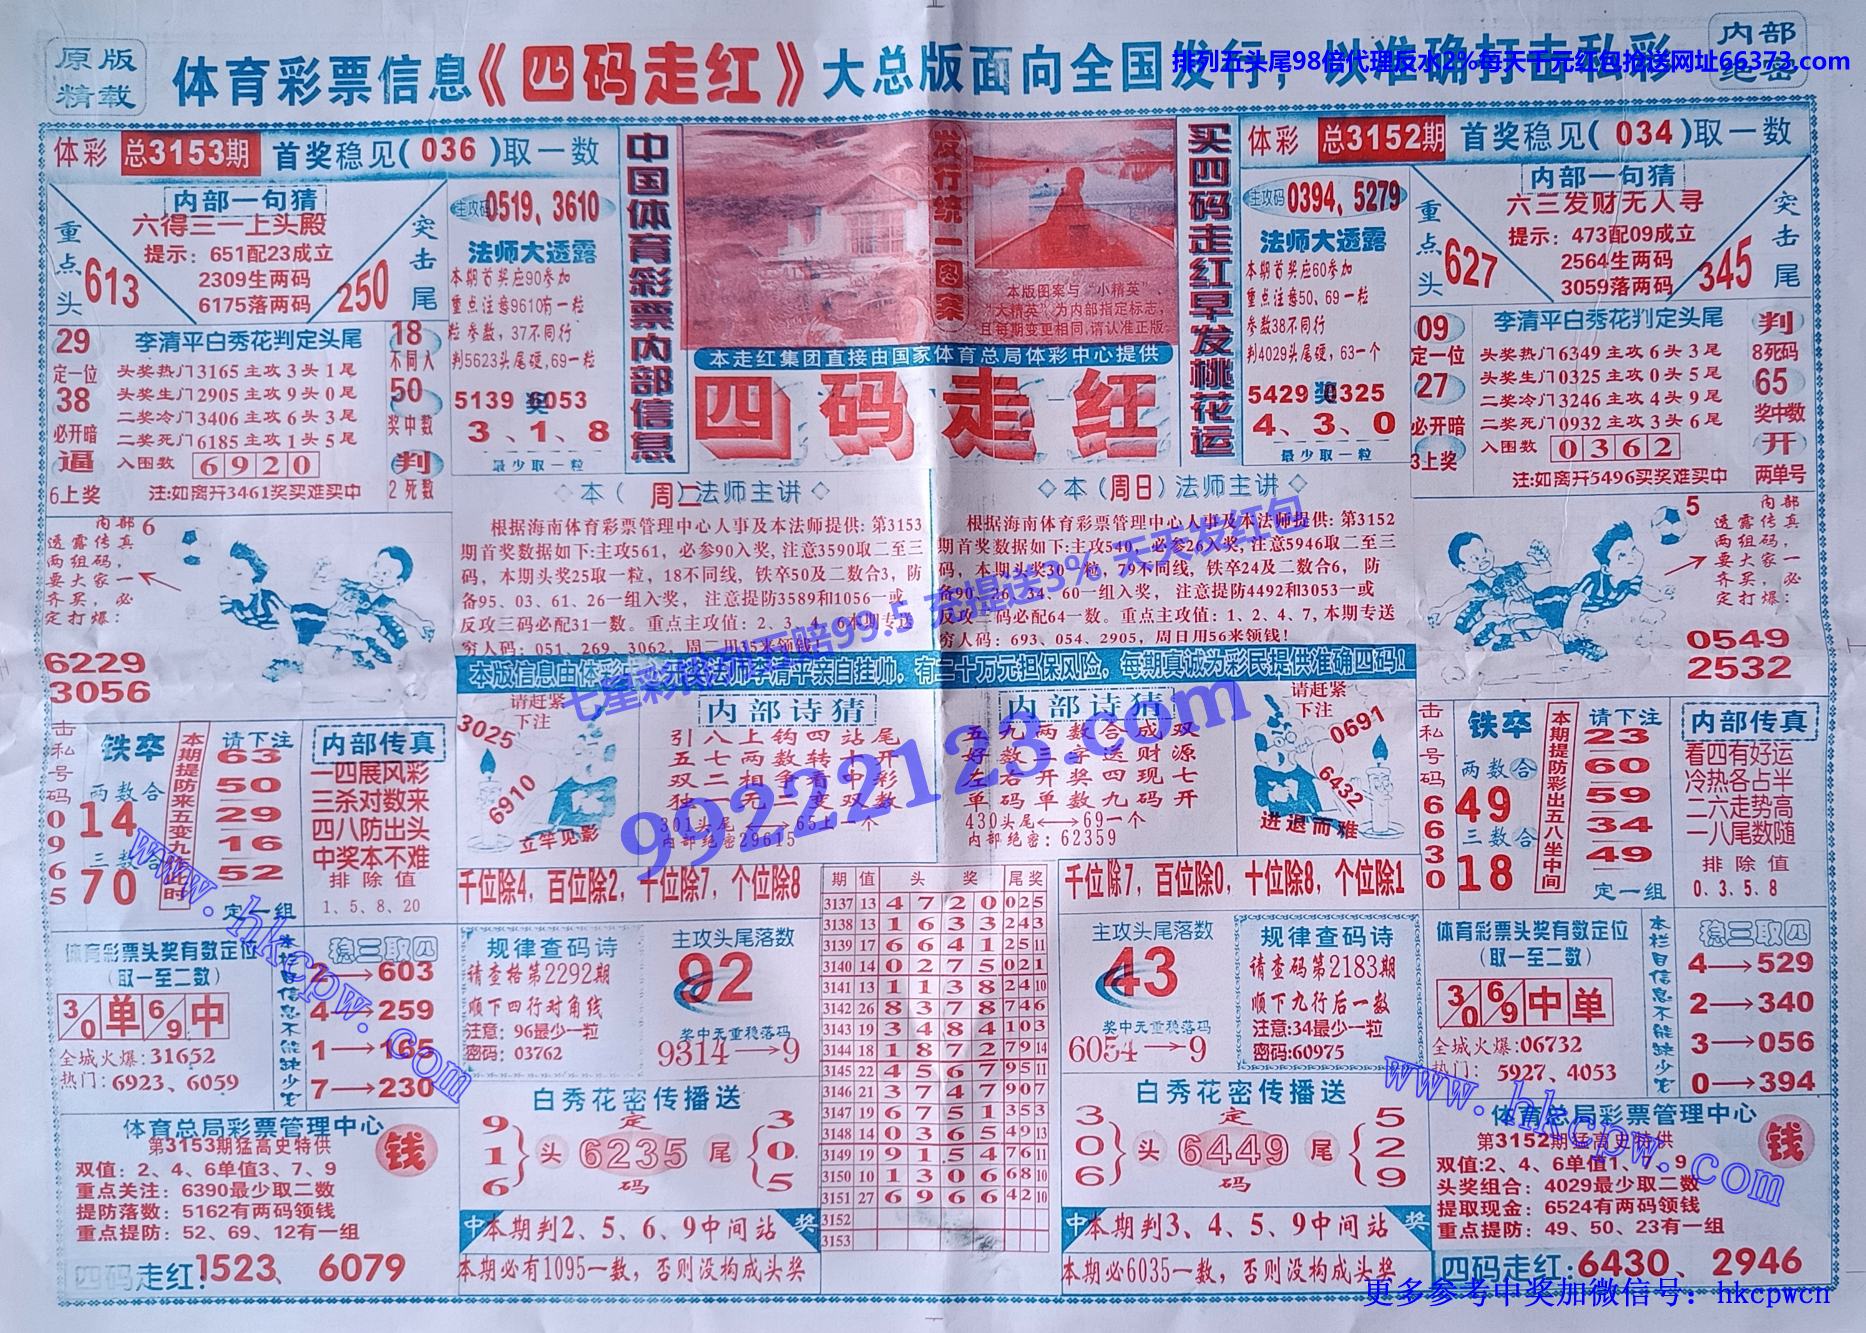 原版
精载
体育彩票信息《四码走红》大总版面向全国发行，以准确打击私彩
内部
绝密
排列五头尾98倍代理反水2%每天千元红包抢送网址66373.com
体彩 总3153期 首奖稳见(036)取一数
内部一句猜
六得三一上头殿
提示: 651配23成立
2309生两码
6175落两码
重点头
613
突击尾
250
主攻码0519、3610
法师大透露
本期首奖应90参加
重点注意9610有一粒
粒参数，37不同行
判5623头尾硬,69一粒
5139奖6053
3、1、8
最少取一粒
29
定一位
38
必开暗
逼
6上奖
李清平白秀花判定头尾
头奖热门3165主攻3头1尾
头奖生门2905主攻9头0尾
二奖冷门3406主攻6头3尾
二奖死门6185主攻1头5尾
入围数 6920
注:如离开3461奖买难买中
18
不同入
50
奖中数
判
2死数
中国体育彩票内部信息
发行统一图案
本版图案与“小精英”、
“大精英”为内部指定标志，
且每期变更相同,请认准正版
本走红集团直接由国家体育总局体彩中心提供
四码走红
买四码走红早发桃花运
体彩 总3152期 首奖稳见(034)取一数
主攻码0394,5279
法师大透露
本期首奖应60参加
重点注意50、69一粒
参数38不同行
判4029头尾硬，63一个
5429奖0325
4、3、0
最少取一粒
内部一句猜
六三发财无人寻
提示: 473配09成立
2564生两码
3059落两码
重点头
627
突击尾
345
09
定一位
27
必开暗
3上奖
李清平白秀花判定头尾
头奖热门6349主攻6头3尾
头奖生门0325主攻0头5尾
二奖冷门3246主攻4头9尾
二奖死门0932主攻3头6尾
入围数 0362
注:如离开5496买奖难买中
判
8死码
65
奖中数
开
两单号
内部 6
透露传真
两组码，
要大家一
齐买，必
定打爆:
6229
3056
◇本(周二)法师主讲◇
根据海南体育彩票管理中心人事及本法师提供: 第3153
期首奖数据如下:主攻561，必参90入奖,注意3590取二至三
码，本期头奖25取一粒，18不同线, 铁卒50及二数合3, 防
备95、03、61、26一组入奖， 注意提防3589和1056一或
反攻三码必配31一数。重点主攻值: 2、3、4、6本期专送
穷人码: 051、269、3062，周二用35来领钱!
◇本(周日)法师主讲◇
根据海南体育彩票管理中心人事及本法师提供: 第3152
期首奖数据如下:主攻540，必参26入奖, 注意5946取二至三
码，本期头奖30一粒，79不同线, 铁卒24及二数合6， 防
备90、26、34、60一组入奖， 注意提防4492和3053一或
反攻三码必配64一数。重点主攻值: 1、2、4、7,本期专送
穷人码: 693、054、2905，周日用56来领钱!
内部 5
透露传真
两组码，
要大家一
齐买，必
定打爆:
0549
2532
七星彩排列五赔99.5 充提送3% 天天发红包
99222123.com
本版信息由体彩中心兑奖法师李清平亲自挂帅，有二十万元担保风险，每期真诚为彩民提供准确四码!
击私号码09665
铁卒
两数合
14
三数合
70
本期提防来五变九防此时
请下注
63
50
29
16
52
定一组
内部传真
一四展风彩
三杀对数来
四八防出头
中奖本不难
排除值
1、5、8、20
请赶紧
下注
3025
6910
立竿见影
内部诗猜
引八上钩四站尾
五七两数转十开
双二相争看中彩
独一无二变双数
301头尾⟷651一个
内部绝密29615
内部诗猜
五九两数合成双
好数三字送财源
左右开奖四现七
单码单数九码开
430头尾⟷69一个
内部绝密: 62359
请赶紧
下注
0691
6432
进退而难
击私号码66630
铁卒
两数合
49
三数合
18
本期提防彩出五八坐中间
请下注
23
60
59
34
49
定一组
内部传真
看四有好运
冷热各占半
二六走势高
一八尾数随
排除值
0、3、5、8
千位除4，百位除2，十位除7，个位除8
千位除7，百位除0，十位除8，个位除1
期 值 头奖 尾奖
3137 13 4720 025
3138 13 1633 243
3139 17 6641 25 11
3140 14 0275 021
3141 13 1138 24 10
3142 26 8378 746
3143 19 3484 103
3144 18 1872 79 14
3145 22 4567 95 11
3146 21 3747 907
3147 19 6751 353
3148 14 0365 49 13
3149 19 9154 76 11
3150 10 1306 68 10
3151 27 6966 42 10
3152
3153
体育彩票头奖有数定位
(取一至二数)
3/0 单 6/9 中
全城火爆:31652
热门: 6923、6059
本栏目信息不能缺少它
稳三取四
2→603
4→259
1→165
7→230
规律查码诗
请查格第2292期
顺下四行对角线
注意: 96最少一粒
密码: 03762
主攻头尾落数
92
奖中无重稳落码
9314→9
主攻头尾落数
43
奖中无重稳落码
6054→9
规律查码诗
请查码第2183期
顺下九行后一数
注意:34最少一粒
密码:60975
体育彩票头奖有数定位
(取一至二数)
3/0 6/9 中 单
全城火爆:06732
热门: 5927、4053
本栏目信息不能缺少它
稳三取四
4→529
2→340
3→056
0→394
体育总局彩票管理中心
第3153期猛高史特供
钱
双值: 2、4、6单值3、7、9
重点关注: 6390最少取二数
提防落数: 5162有两码领钱
重点提防: 52、69、12有一组
四码走红:1523、6079
白秀花密传播送
916 头 定 6235 码 尾 305
中 本期判2、5、6、9中间站 奖
本期必有1095一数，否则没构成头奖
白秀花密传播送
306 头 定 6449 码 尾 529
中 本期判3、4、5、9中间站 奖
本期必6035一数，否则没构成头奖
体育总局彩票管理中心
第3152期猛高史特供
钱
双值:2、4、6单值1、7、9
头奖组合: 4029最少取二数
提取现金: 6524有两码领钱
重点提防: 49、50、23有一组
四码走红:6430、2946
www.hkcpw.com
www.hkcpw.com
更多参考中奖加微信号: hkcpwcn